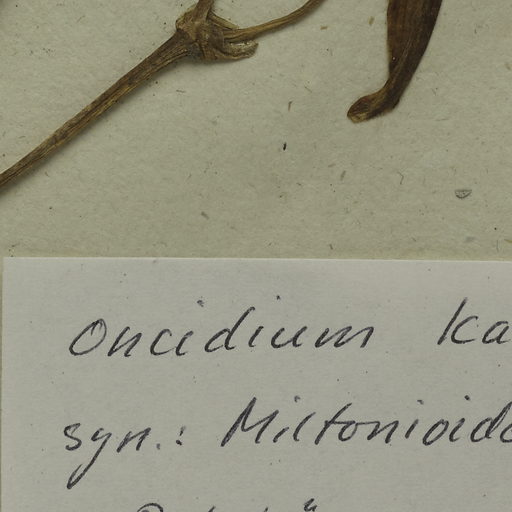 Oncidium Ka
syn.: Miltonioide